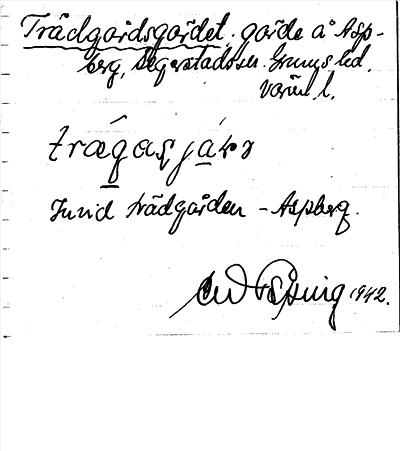 Trädgårdsgärdet. gärde å Asp-
berg, Segerstads sn. Grums hd.
Värml. l.
trægasjáɽɔ
Invid trädgården - Aspberg.
1942.